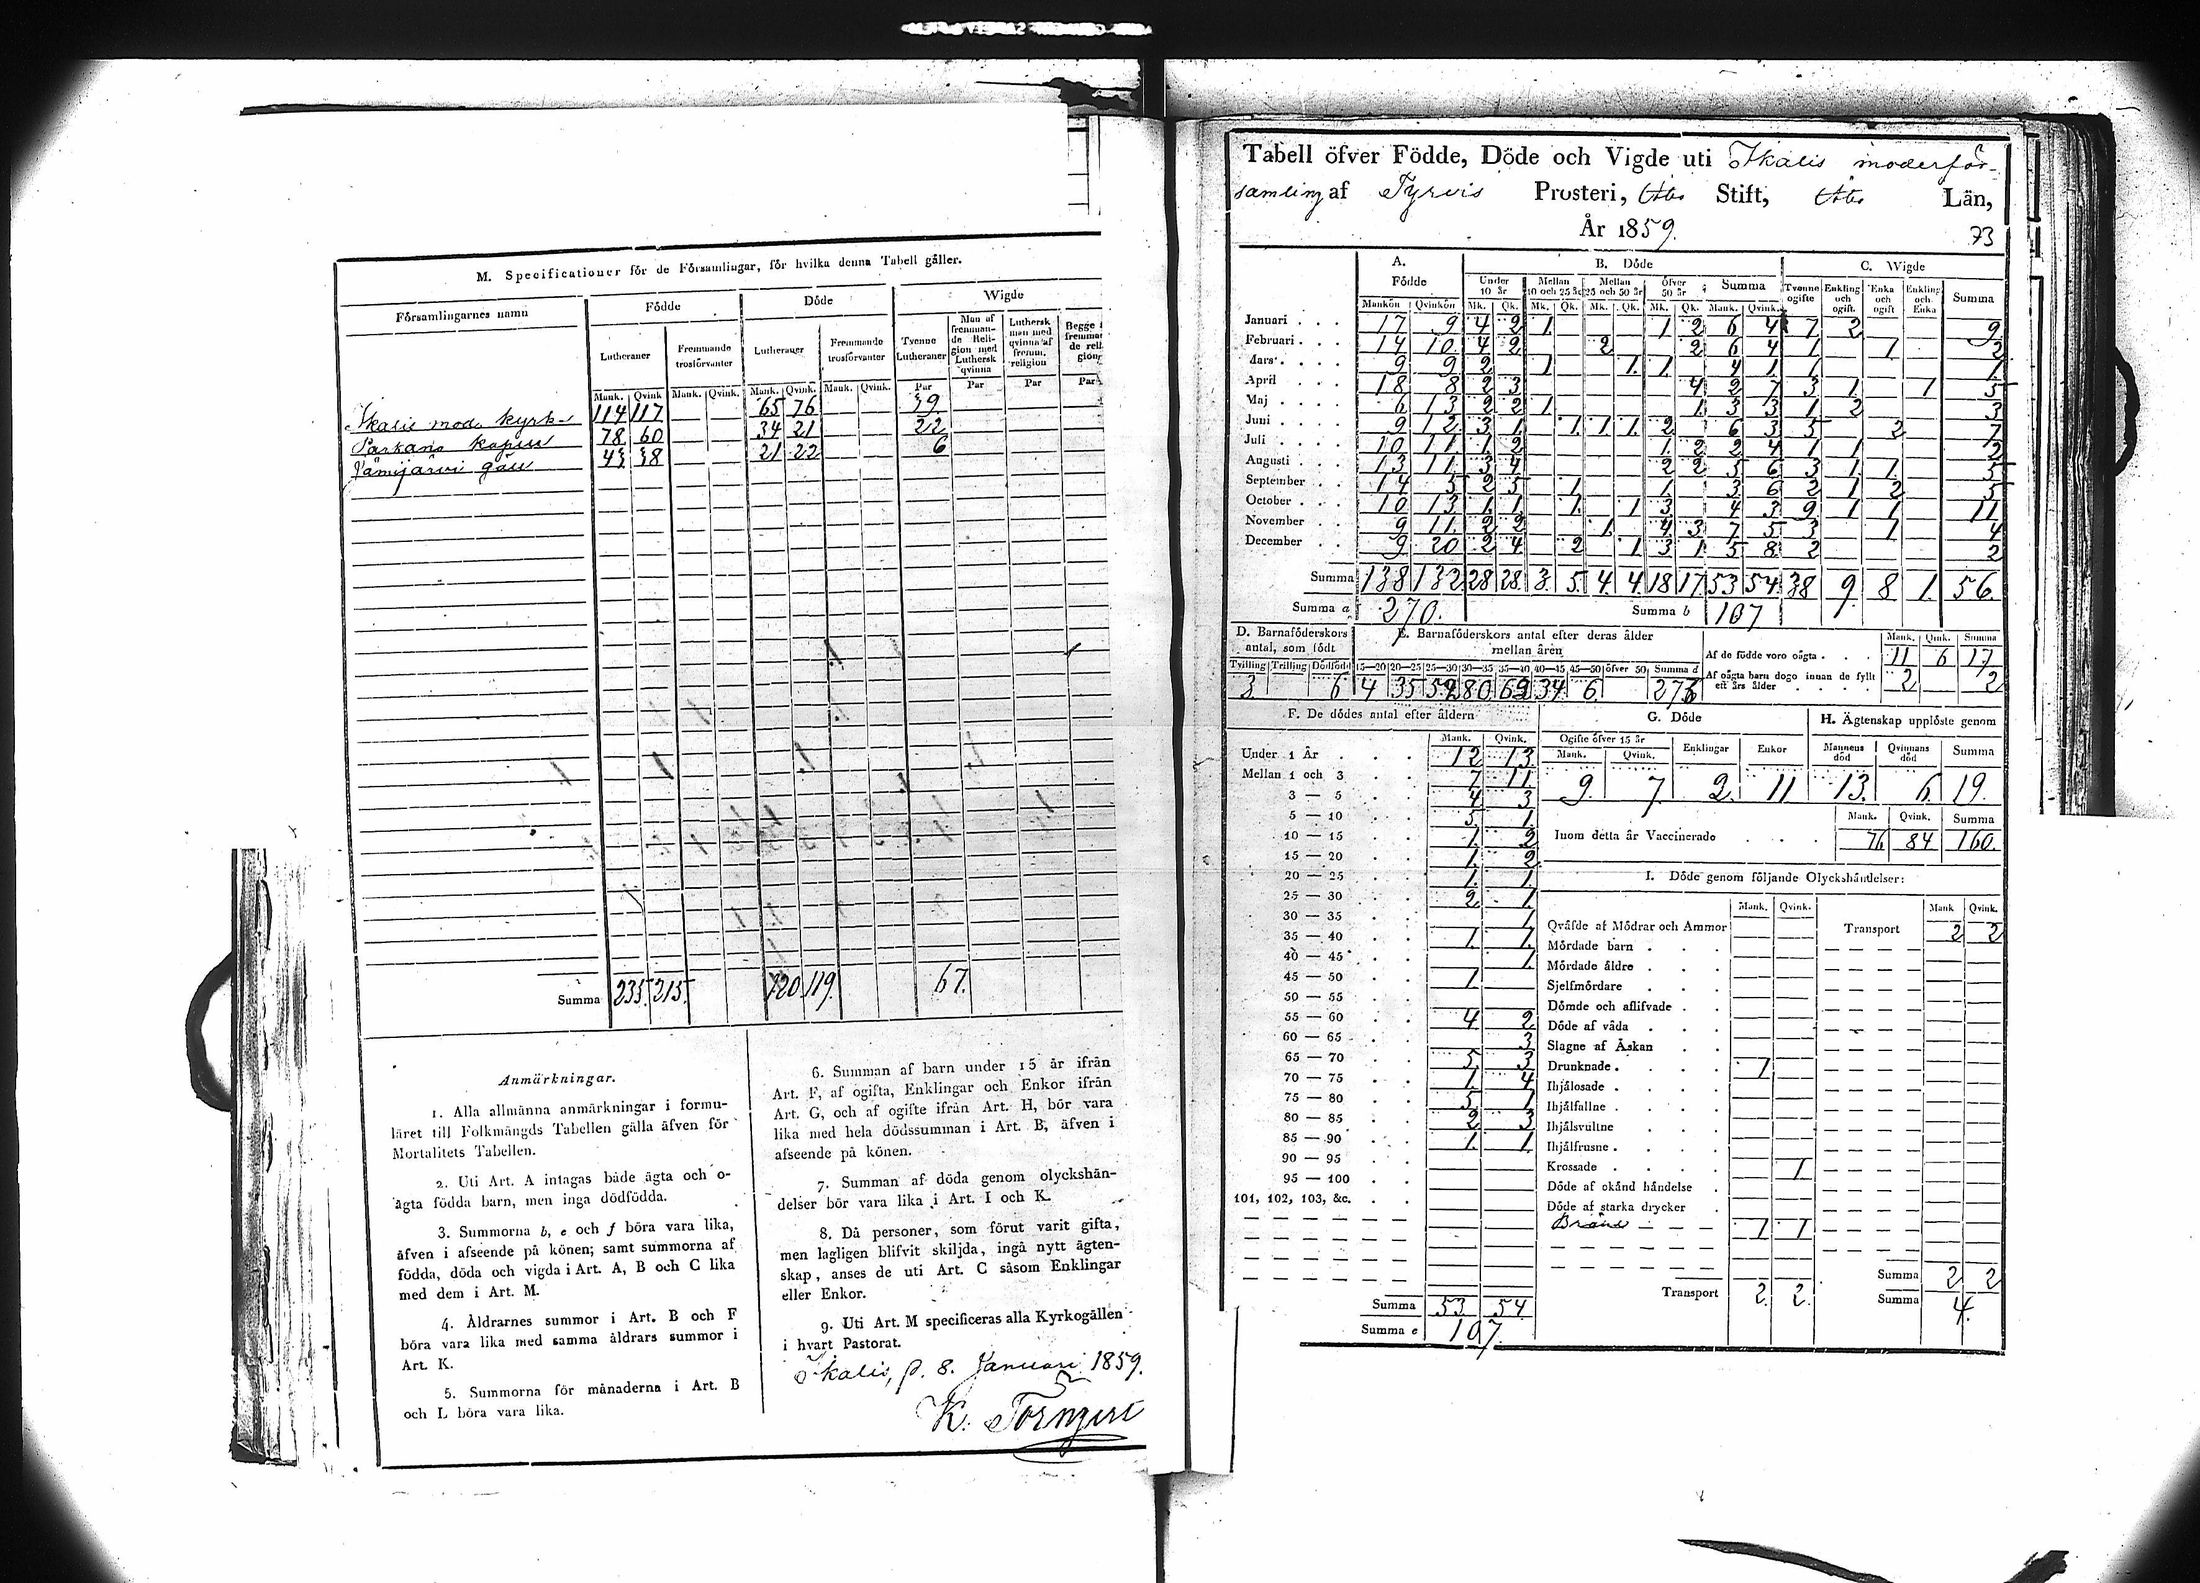 M. Specificationer för de Församlingar, för hvilka denna Tabell gäller.
Församlingarnes namn Födde Döde Wigde
Lutheraner Fremmande trosförvanter Lutheraner Fremmande trosförvanter Tvenne Lutheraner Man af fremmande Religion med Luthersk qvinna Luthersk man med qvinna af fremm. religion
Mank. Qvink Mank. Qvink. Mank. Qvink. Mank. Qvink. Par Par Par Par
Ikalis mod. kyrk. 114 117 65 76 39
Parkano kapell 78 60 34 21 22
Jämijärvi 43 38 21 22 6
Summa 235 215 120 119 67.
Anmärkningar.
1. Alla allmänna anmärkningar i formu-
läret till Folkmängds Tabellen gälla äfven för
Mortalitets Tabellen.
2. Uti Art. A intagas både ägta och o-
ägta födda barn, men inga dödfödda.
3. Summorna b, e och f böra vara lika,
äfven i afseende på könen; samt summorna af
födda, döda och vigda i Art. A, B och C lika
med dem i Art. M.
4. Åldrarnes summor i Art. B och F
böra vara lika med samma åldrars summor i
Art. K.
5. Summorna för månaderna i Art. B
och L böra vara lika.
6. Summan af barn under 15 år ifrån
Art. F, af ogifta, Enklingar och Enkor ifrån
Art. G, och af ogifte ifrån Art. H, bör vara
lika med hela dödssumman i Art. B, äfven i
afseende på könen.
7. Summan af döda genom olyckshän-
delser bör vara lika i Art. I och K.
8. Då personer, som förut varit gifta,
men lagligen blifvit skiljda, ingå nytt ägten-
skap, anses de uti Art. C såsom Enklingar
eller Enkor.
9. Uti Art. M specificeras alla Kyrkogällen
i hvart Pastorat.
Ikalis, 8. Januari 1859.
Tabell öfver Födde, Döde och Vigde uti Ikalis moderför-
samling af Tyrvis Prosteri, Åbo Stift, Åbo Län,
År 1859.
73
A. Födde B. Döde C. Wigde
Under 10 år Mellan 10 och 25 år Mellan 25 och 50 år Öfver 50 år Summa Tvenne ogifte Enkling och ogift. Enka och ogift Enkling och Enka Summa
Mankön Qvinkön Mk. Qk. Mk. Qk. Mk. Qk. Mk. Qk. Mank. Qvink.
Januari 17 9 4 2 1 1 2 6 4 7 2 9
Februari 14 10 4 2 2 2 6 4 1 1 2
Mars 9 9 2 1 1 1 4 1 1 1
April 18 8 2 3 4 2 7 3 1 1 5
Maj 6 13 2 2 1 1 3 3 1 2 3
Juni 9 12 3 1 1 1 1 2 6 3 5 2 7
Juli 10 11 1 2 1 2 2 4 1 1 2
Augusti 13 11 3 4 2 2 5 6 3 1 1 5
September 14 5 2 5 1 1 3 6 2 1 2 5
October 10 13 1 1 1 1 3 4 3 9 1 1 11
November 9 11 2 2 1 4 3 7 5 3 1 4
December 9 20 2 4 2 1 3 1 5 8 2 2
Summa 138 132 28 28 3 5 4 4 18 17 53 54 38 9 8 1 56
Summa a 270. Summa b 107
D. Barnaföderskors antal, som födt E. Barnaföderskors antal efter deras ålder mellan åren
Tvilling Trilling Dödfödd 15—20 20—25 25—30 30—35 35—40 40—45 45—50 öfver 50 Summa d
3 6 4 35 80 34 6 273
Mank. Qink. Summa
Af de födde voro oägta 11 6 17
Af oägta barn dogo innan de fyllt ett års ålder 2 2
F. De dödes antal efter åldern
Mank. Qvink.
Under 1 År 12 13
Mellan 1 och 3 7 11
3 — 5 4 3
5 — 10 5 1
10 — 15 1 2
15 — 20 1 2
20 — 25 1 1
25 — 30 2 1
30 — 35 1
35 — 40 1 1
40 — 45 1
45 — 50 1
50 — 55
55 — 60 4 2
60 — 65 3
65 — 70 5 3
70 — 75 1 4
75 — 80 5 1
80 — 85 2 3
85 — 90 1 1
90 — 95
95 — 100
101, 102, 103, &c.
Summa 53 54
Summa e 107.
G. Döde
Ogifte öfver 15 år Enklingar Enkor
Mank. Qvink.
9 7 2 11
H. Ägtenskap upplöste genom
Mannens död Qvinnans död Summa
13 6 19.
Mank. Qvink. Summa
Inom detta år Vaccinerade 76 84 160.
I. Döde genom följande Olyckshändelser:
Mank. Qvink. Mank Qvink.
Qväfde af Mödrar och Ammor Transport 2 2
Mördade barn
Mördade äldre
Sjelfmördare
Dömde och aflifvade
Döde af våda
Slagne af Åskan
Drunknade 1
Ihjälosade
Ihjälfallne
Ihjälsvultne
Ihjälfrusne
Krossade 1
Döde af okänd händelse
Döde af starka drycker
1 1
Transport 2 2
Summa 2 2
Summa 4.